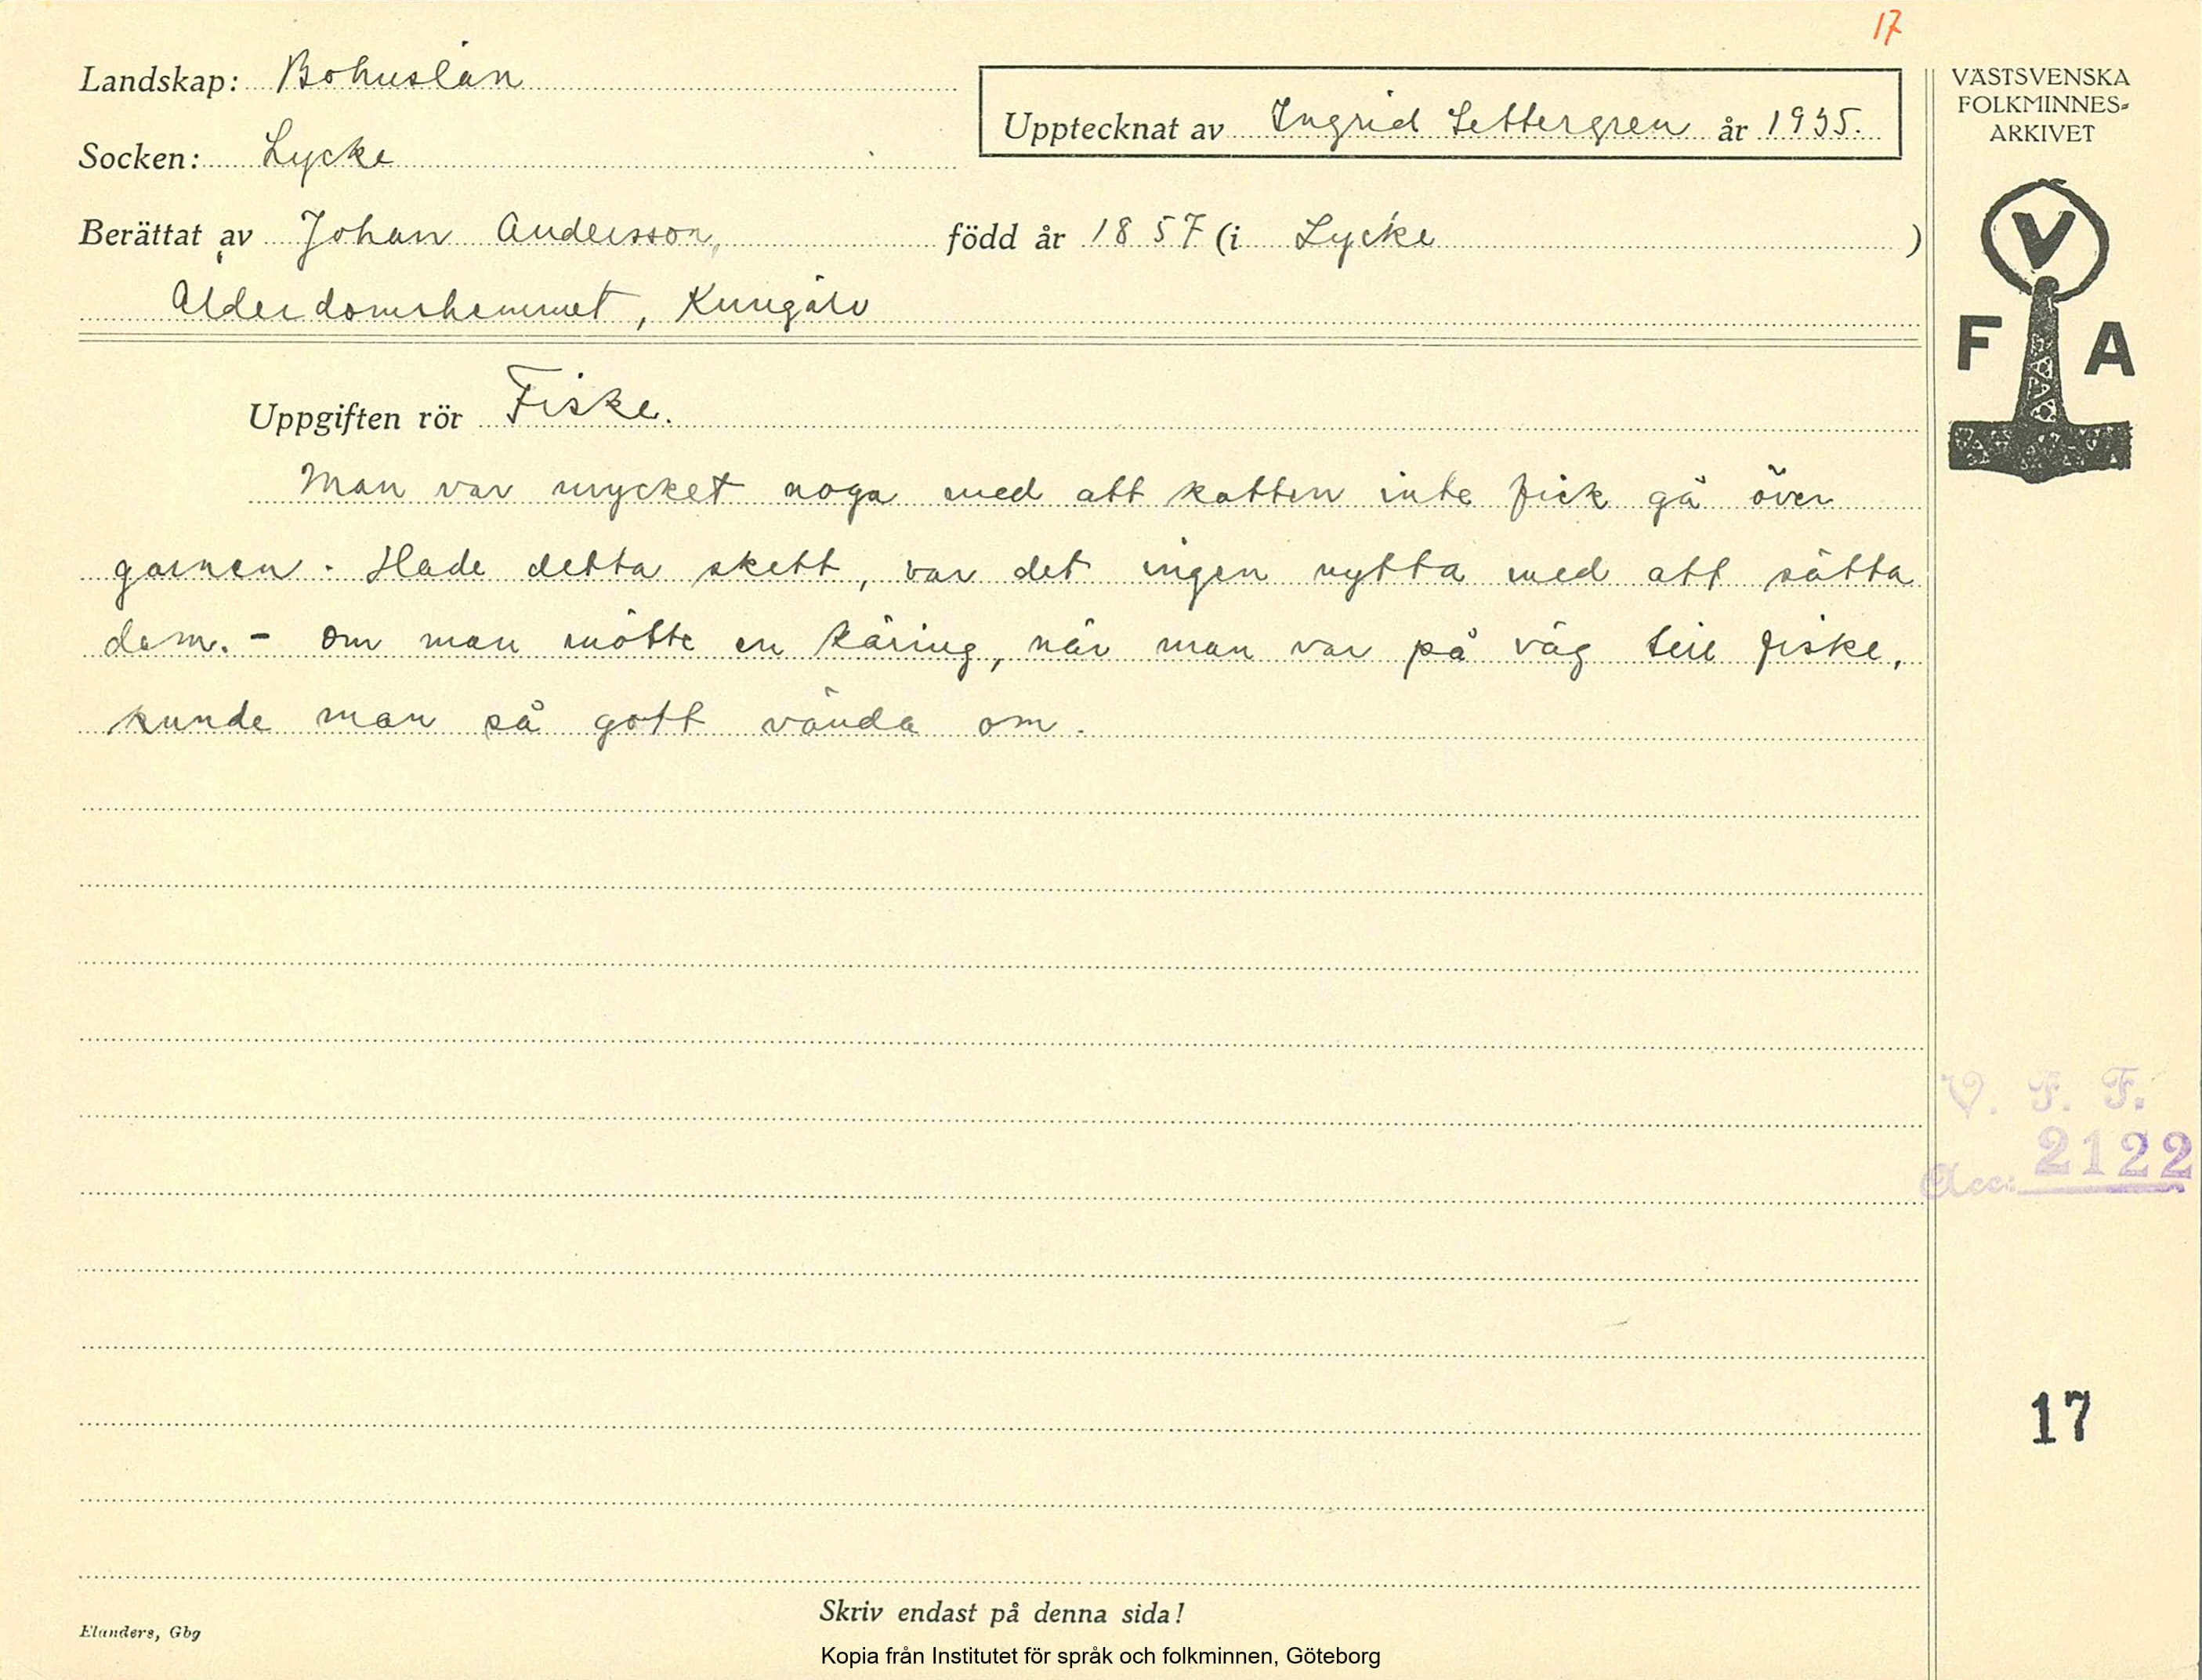 17
Landskap: Bohuslän
Upptecknat av Ingrid Settergren år 1935.
Socken: Lycke
Berättat av Johan Andersson, född år 1857 (i Lycke )
Ålderdomshemmet, Kungälv
Uppgiften rör Fiske.
Man var mycket noga med att katten inte fick gå över
garnen. Hade detta skett, var det ingen nytta med att sätta
dem. - Om man mötte en käring, när man var på väg till fiske,
kunde man så gott vända om.
VÄSTSVENSKA
FOLKMINNES-
ARKIVET
V
F A
V. F. F.
Acc: 2122
17
Skriv endast på denna sida!
Elanders, Gbg
Kopia från Institutet för språk och folkminnen, Göteborg